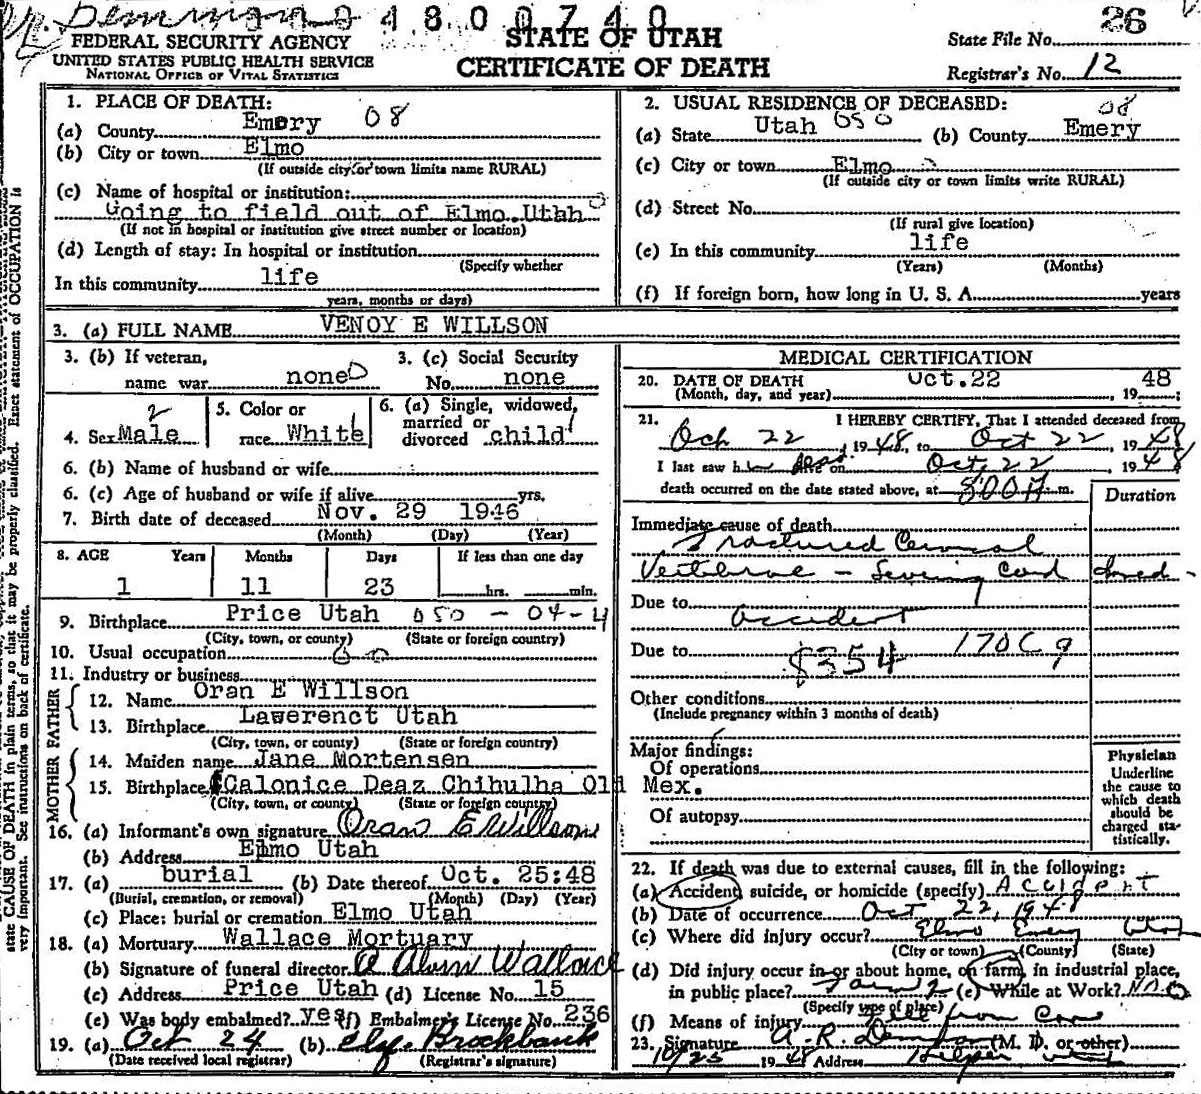 4 8 0 0 7 4 0
26
FEDERAL SECURITY AGENCY
UNITED STATES PUBLIC HEALTH SERVICE
NATIONAL OFFICE OF VITAL STATISTICS
STATE OF UTAH
CERTIFICATE OF DEATH
State File No.
Registrar's No. 12
state CAUSE OF DEATH in plain terms, so that it may be properly classified. Exact statement of OCCUPATION is
very important. See instructions on back of certificate.
1. PLACE OF DEATH:
(a) County Emery 08
(b) City or town Elmo
(If outside city or town limits name RURAL)
(c) Name of hospital or institution:
Going to field out of Elmo Utah
(If not in hospital or institution give street number or location)
(d) Length of stay: In hospital or institution
(Specify whether
In this community life
years, months or days)
2. USUAL RESIDENCE OF DECEASED:
08
(a) State Utah 050 (b) County Emery
(c) City or town Elmo
(If outside city or town limits write RURAL)
(d) Street No.
(If rural give location)
(e) In this community life
(Years) (Months)
(f) If foreign born, how long in U. S. A. years
3. (a) FULL NAME VENOY E WILLSON
3. (b) If veteran, name war none
3. (c) Social Security No. none
4. Sex Male 2
5. Color or race White 1
6. (a) Single, widowed, married or divorced child 1
6. (b) Name of husband or wife
6. (c) Age of husband or wife if alive yrs.
7. Birth date of deceased Nov. 29 1946
(Month) (Day) (Year)
8. AGE Years Months Days If less than one day
1 11 23 hrs. min.
9. Birthplace Price Utah 050 - 04 - 4
(City, town, or county) (State or foreign country)
10. Usual occupation
11. Industry or business
FATHER
12. Name Oran E Willson
13. Birthplace Lawerenct Utah
(City, town, or county) (State or foreign country)
MOTHER
14. Maiden name Jane Mortensen
15. Birthplace Calonice Deaz Chihulha Old Mex.
(City, town, or county) (State or foreign country)
16. (a) Informant's own signature Oran E Willson
(b) Address Elmo Utah
17. (a) burial (b) Date thereof Oct. 25:48
(Burial, cremation, or removal) (Month) (Day) (Year)
(c) Place: burial or cremation Elmo Utah
18. (a) Mortuary Wallace Mortuary
(b) Signature of funeral director A Alvin Wallace
(c) Address Price Utah (d) License No. 15
(e) Was body embalmed? yes (f) Embalmer's License No. 236
19. (a) Oct 24 (b) Brockbank
(Date received local registrar) (Registrar's signature)
MEDICAL CERTIFICATION
20. DATE OF DEATH Oct. 22 1948;
(Month, day, and year)
21. I HEREBY CERTIFY, That I attended deceased from
Oct 22, 1948, to Oct 22 1948
I last saw h on Oct 22, 1948
death occurred on the date stated above, at 8:00 A m.
Duration
Immediate cause of death
Fractured Cervical
Vertebrae - Severing Cord
Due to Accident
Due to 170C9
$354
Other conditions
(Include pregnancy within 3 months of death)
Major findings:
Of operations
Of autopsy
Physician
Underline
the cause to
which death
should be
charged sta-
tistically.
22. If death was due to external causes, fill in the following:
(a) Accident, suicide, or homicide (specify) Accident
(b) Date of occurrence Oct 22, 1948
(c) Where did injury occur? Elmo Emery Utah
(City or town) (County) (State)
(d) Did injury occur in or about home, on farm, in industrial place,
in public place? Farm (e) While at Work? No
(Specify type of place)
(f) Means of injury Fell from
23. Signature A. R. (M. D. or other)
10/25 1948 Address Helper Utah